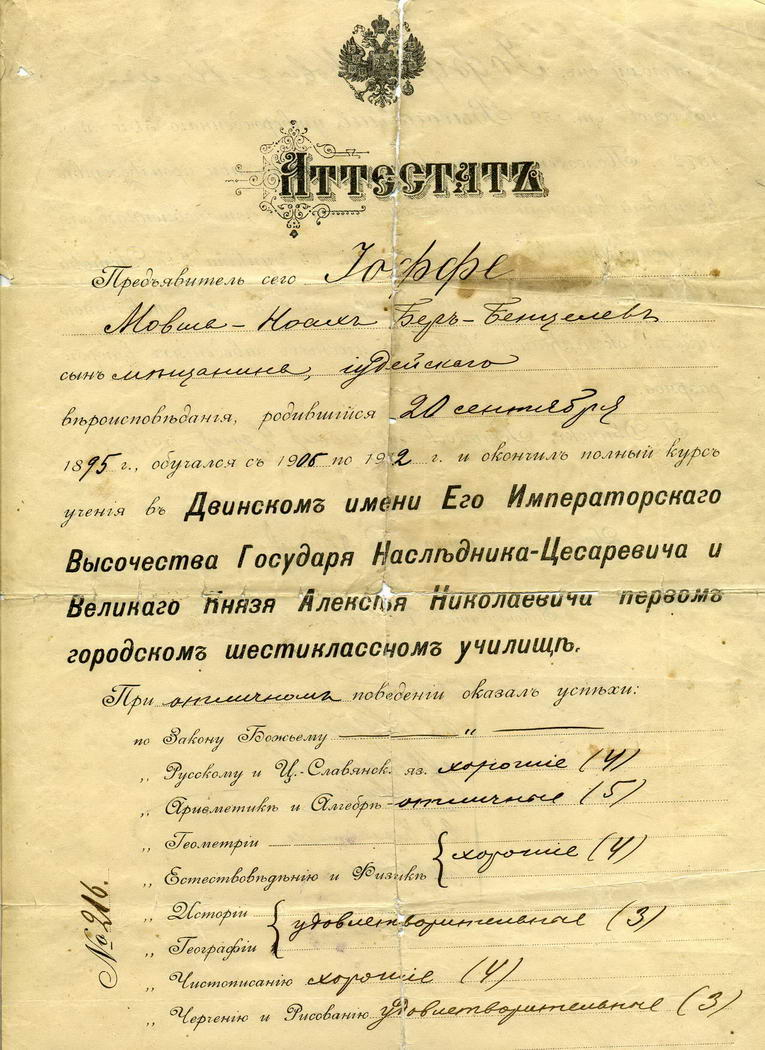 Аттестатъ
Предъявитель сего Іоффе
Мовша-Ноахъ Беръ-Бенцелевъ
сынъ мѣщанина, іудейскаго
вѣроисповѣданія, родившійся 20 сентября
1895 г., обучался съ 1906 по 1912 г. и окончилъ полный курсъ
ученія въ Двинскомъ имени Его Императорскаго
Высочества Государя Наслѣдника-Цесаревича и
Великаго Князя Алексѣя Николаевича первомъ
городскомъ шестиклассномъ училищѣ.
При отличномъ поведеніи оказалъ успѣхи:
по Закону Божьему — „ —
„ Русскому и Ц.-Славянск. яз. хорошіе (4)
„ Ариѳметикѣ и Алгебрѣ отличные (5)
„ Геометріи
хорошіе (4)
„ Естествовѣдѣнію и Физикѣ
„ Исторіи
удовлетворительные (3)
„ Географіи
„ Чистописанію хорошіе (4)
„ Черченію и Рисованію удовлетворительные (3)
№ 216.